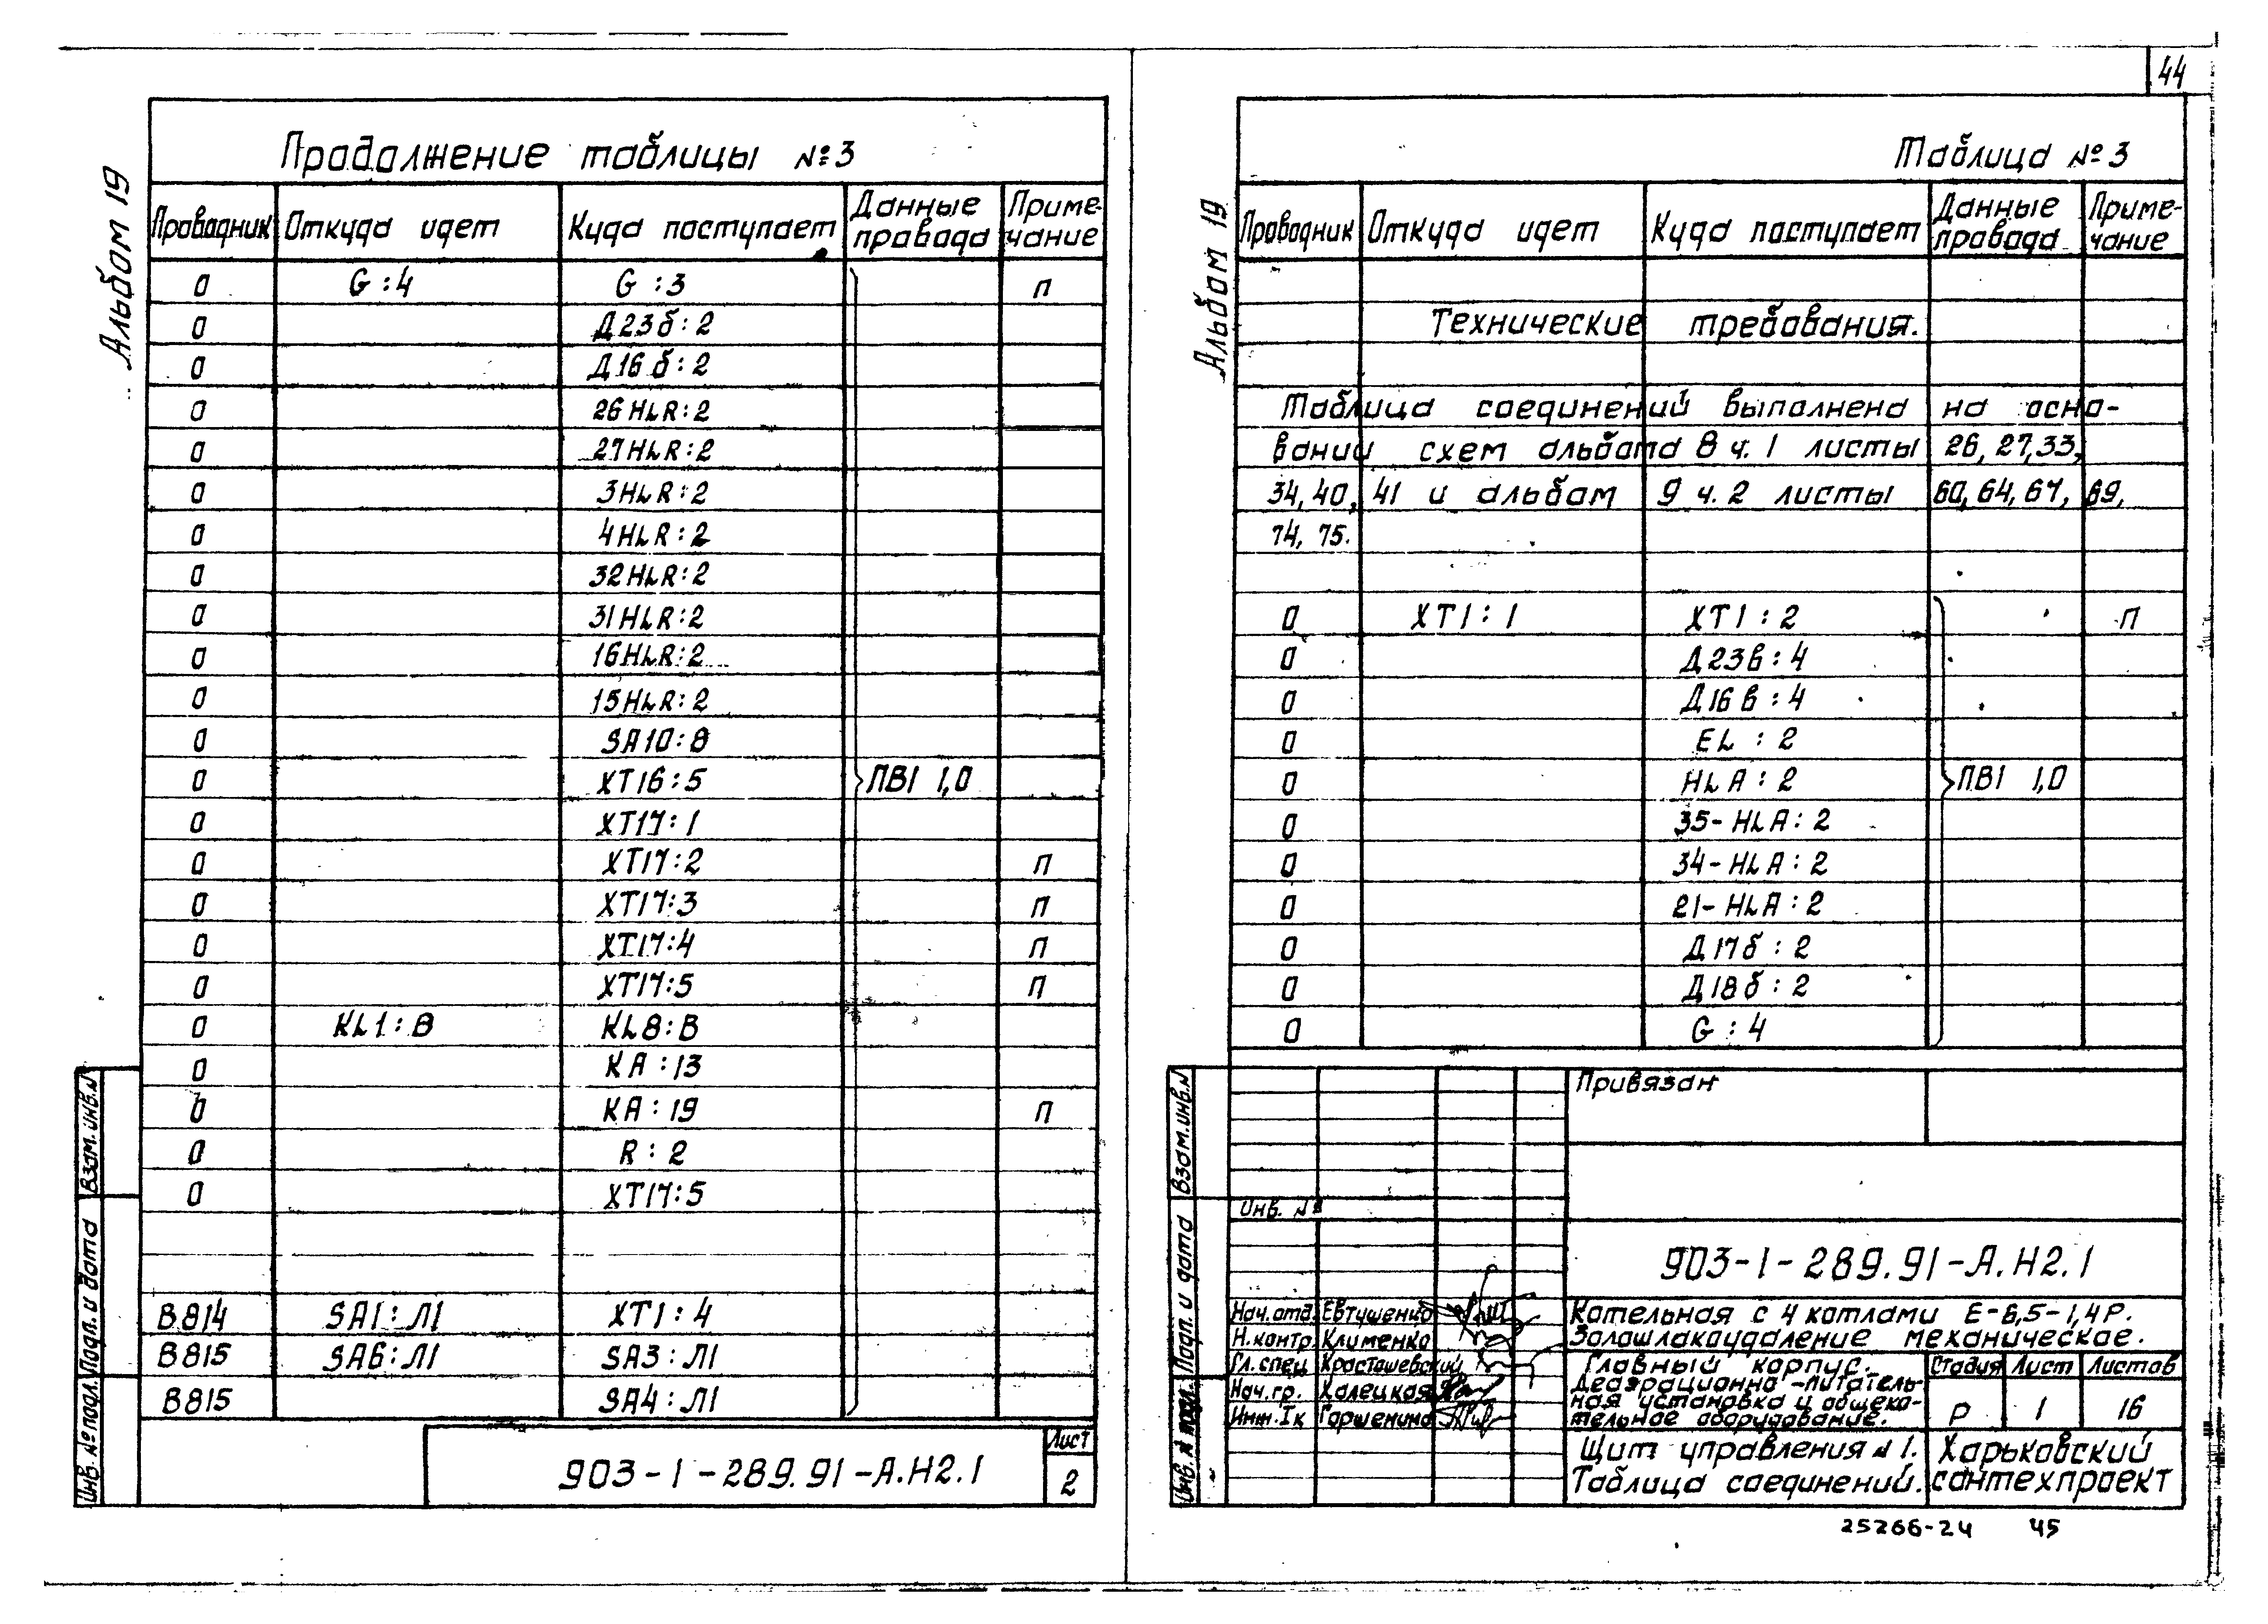 Альбом 19
Продолжение таблицы №3
Проводник Откуда идет Куда поступает Данные провода Примечание
0 G:4 G:3 п
0 Д23б:2
0 Д16б:2
0 26HLR:2
0 27HLR:2
0 3HLR:2
0 4HLR:2
0 32HLR:2
0 31HLR:2
0 16HLR:2
0 15HLR:2
0 SA10:8
0 XT16:5 ПВ1 1,0
0 XT17:1
0 XT17:2 п
0 XT17:3 п
0 XT17:4 п
0 XT17:5 п
0 KL1:В KL8:В
0 KA:13
0 KA:19 п
0 R:2
0 XT17:5
В814 SA1:Л1 XT1:4
В815 SA6:Л1 SA3:Л1
В815 SA4:Л1
Инв. № подл. Подп. и дата Взам. инв. №
903-1-289.91-А.Н2.1
Лист
2
44
Альбом 19
Таблица №3
Проводник Откуда идет Куда поступает Данные провода Примечание
Технические требования.
Таблица соединений выполнена на осно-
вании схем альбома 8 ч.1 листы 26,27,33,
34,40,41 и альбом 9 ч.2 листы 60,64,67,69,
74,75.
0 XT1:1 XT1:2 п
0 Д23в:4
0 Д16в:4
0 EL:2
0 HLA:2 ПВ1 1,0
0 35-HLA:2
0 34-HLA:2
0 21-HLA:2
0 Д17б:2
0 Д18б:2
0 G:4
Инв. № подл. Подп. и дата Взам. инв. №
Привязан
Инв. №
903-1-289.91-А.Н2.1
Нач. отд. Евтушенко
Н. контр. Клименко
Гл. спец. Красташевский
Нач. гр. Халецкая
Инж. Iк Горшенина
Котельная с 4 котлами Е-6,5-1,4Р.
Золошлакоудаление механическое.
Главный корпус.
Деаэрационно-питатель-
ная установка и общеко-
тельное оборудование.
Стадия Лист Листов
Р 1 16
Щит управления №1.
Таблица соединений.
Харьковский
сантехпроект
25266-24 45